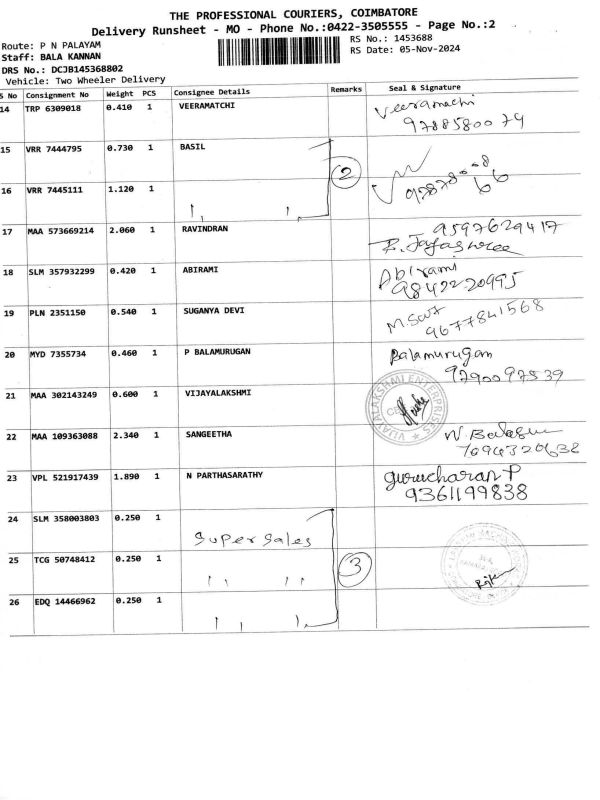 THE PROFESSIONAL COURIERS, COIMBATORE
Delivery Runsheet - MO - Phone No.:0422-3505555 - Page No.:2
Route: P N PALAYAM
Staff: BALA KANNAN
DRS No.: DCJB145368802
Vehicle: Two Wheeler Delivery
RS No.: 1453688
RS Date: 05-Nov-2024
S No Consignment No Weight PCS Consignee Details Remarks Seal & Signature
14 TRP 6309018 0.410 1 VEERAMATCHI Veeramachi
9788580079
15 VRR 7444795 0.730 1 BASIL
2
16 VRR 7445111 1.120 1
17 MAA 573669214 2.060 1 RAVINDRAN 9597629417
R. Jayashree
18 SLM 357932299 0.420 1 ABIRAMI Abirami
9842220995
19 PLN 2351150 0.540 1 SUGANYA DEVI
9677841568
20 MYD 7355734 0.460 1 P BALAMURUGAN Balamurugan
9790097539
21 MAA 302143249 0.600 1 VIJAYALAKSHMI VIJAYALAKSHMI ENTERPRISES
22 MAA 109363088 2.340 1 SANGEETHA
7094320632
23 VPL 521917439 1.890 1 N PARTHASARATHY gurucharan P
9361199838
24 SLM 358003803 0.250 1 super sales
25 TCG 50748412 0.250 1 3
26 EDQ 14466962 0.250 1